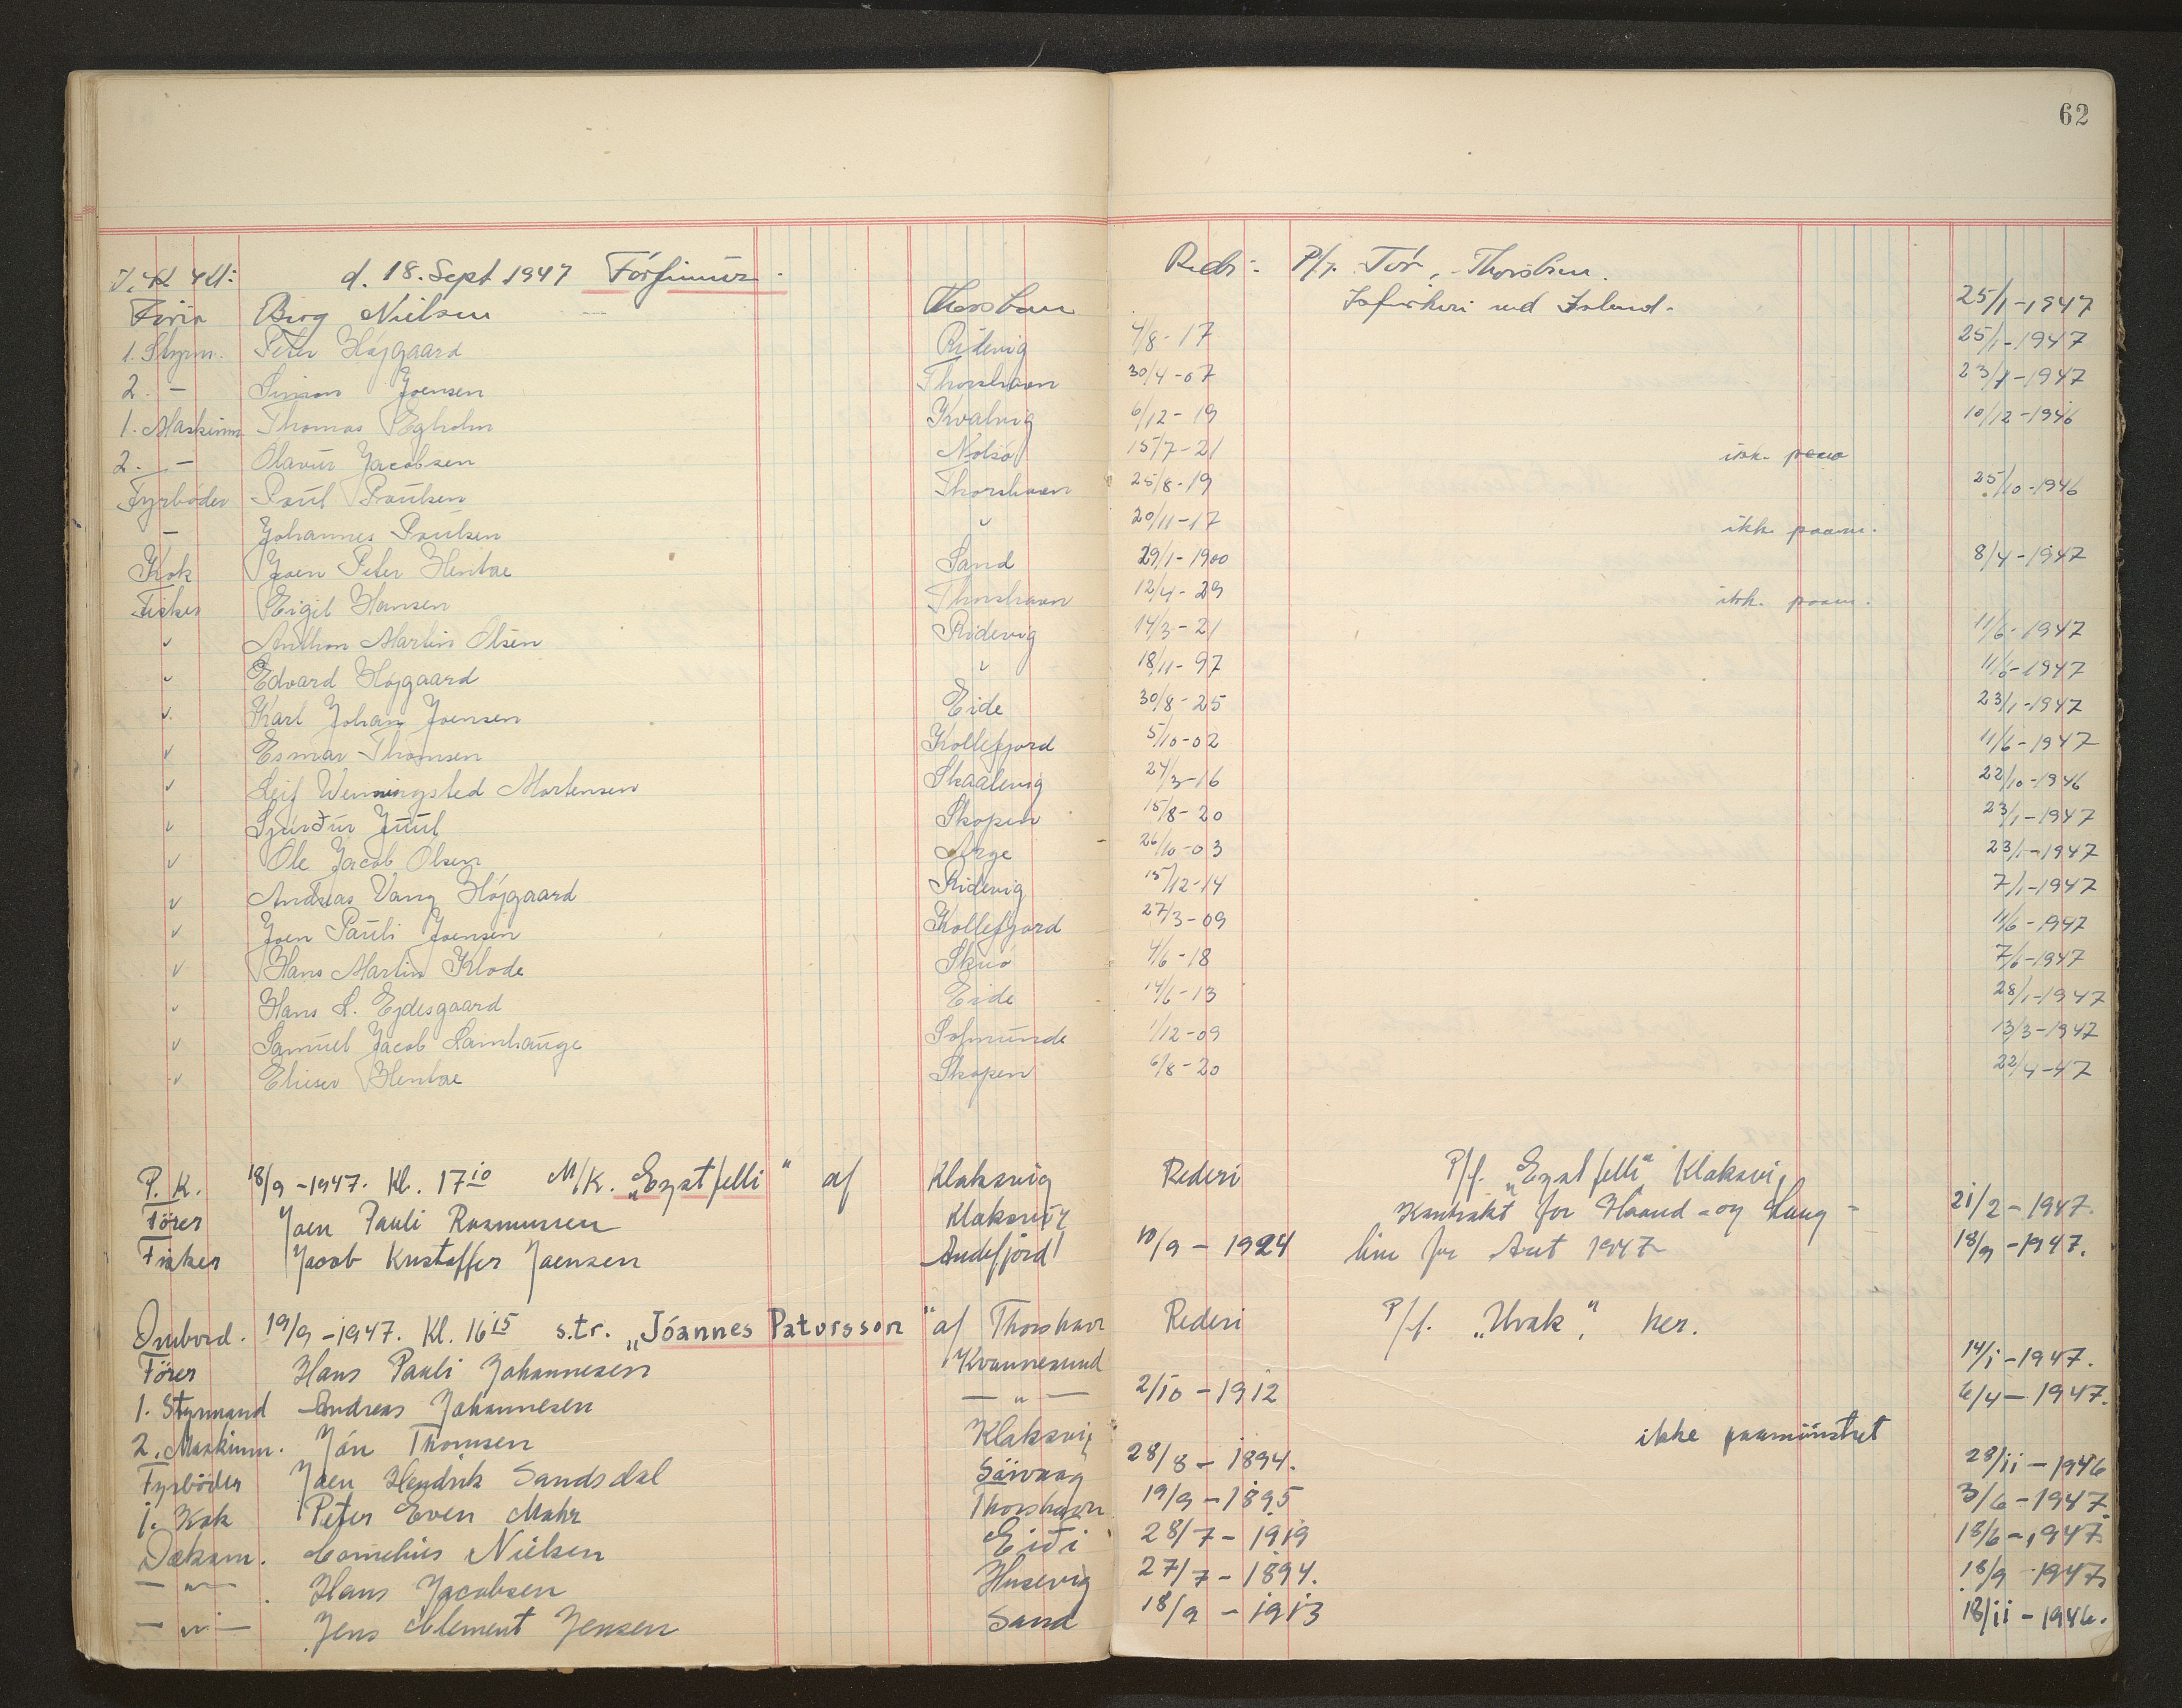 62
d. 18. Sept 1947 Tórfinnur. Rederi: P/f. Tór, Thorshavn.
Förer Berg Nielsen Thorshavn Isfiskeri ved Island. 25/1-1947
1. Styrm. Peter Højgaard Ridevig 4/8-17 25/1-1947
2. - Simon Joensen Thorshavn 30/4-07 23/1-1947
1. Maskinm. Thomas Egholm Kvalvig 6/12-19 10/12-1946
2. - Olavur Jacobsen Nolsö 15/7-21 ikk. paam
Fyrböder Paul Poulsen Thorshavn 25/8-19 25/10-1946
- Johannes Poulsen " 20/11-17 ikk. paam.
Kok Joen Peter Hentze Sand 29/1-1900 8/4-1947
Fisker Eigil Hansen Thorshavn 12/4-29 ikk. paam.
" Anthon Martin Olsen Ridevig 14/3-21 11/6-1947
" Edvard Højgaard " 18/11-97 11/6-1947
" Karl Johan Joensen Eide 30/8-25 23/1-1947
" Esmar Thomsen Kollefjord 5/10-02 11/6-1947
" Leif Wenningsted Mortensen Skaalevig 24/3-16 22/10-1946
" Sjúrður Juul Skopen 15/8-20 23/1-1947
" Ole Jacob Olsen Arge 26/10-03 23/1-1947
" Andreas Vang Höjgaard Ridevig 15/12-14 7/1-1947
" Joen Pauli Joensen Kollefjord 27/3-09 11/6-1947
" Hans Martin Klode Skuö 4/6-18 7/6-1947
" Hans L. Ejdesgaard Eide 14/6-13 28/1-1947
" Samuel Jacob Lamhauge Sofmunde 1/12-09 13/3-1947
" Elieser Hentze Skopen 6/8-20 22/4-47
P. K. 18/9-1947. Kl. 17 10 M/K. „Eystfelli" af Klaksvig Rederi P/f. „Eystfelli" Klaksvig
Förer Joen Pauli Rasmussen Klaksvig Kontrakt for Haand- og Lang- 21/2-1947.
Fisker Jacob Kristoffer Joensen Andefjord 10/9-1924 line for Aret 1947 18/9-1947.
Ombord. 19/9-1947. Kl. 16 15 s.tr. „Jóannes Patursson" af Thorshavn Rederi P/f. „Hvak", her.
Förer Hans Pauli Johannesen Kvannesund 14/1-1947.
1. Styrmand Andreas Johannesen - " - 2/10-1912 6/4-1947.
2. Maskinm. Jón Thomsen Klaksvig ikke paamönstret
Fyrböder Joen Hendrik Sandsdal Sörvaag 28/8-1894. 28/11-1946
1. Kok Peter Even Mohr Thorshavn 19/9-1895 3/6-1947
Dæksm. Cornelius Nielsen Eiði 28/7-1919 18/6-1947
- " - Hans Jacobsen Husevig 27/7-1894. 18/9-1947
- " - Jens Clement Jensen Sand 18/9-1913 18/11-1946.